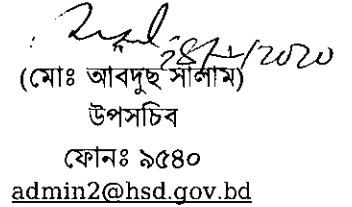 28/1/2020
(মোঃ আবদুছ সালাম)
উপসচিব
ফোনঃ ৯৫৪০
admin2@hsd.gov.bd